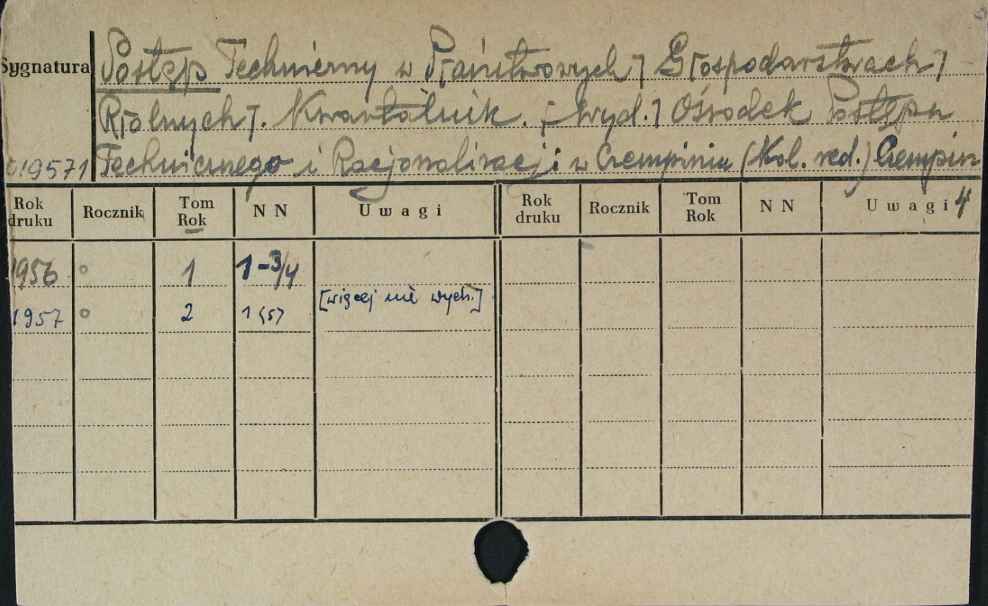 Sygnatura Postęp Techniczny w Państwowych] Gospodarstwach]
Rolnych]. Kwartalnik. [Wyd.] Ośrodek Postępu
19571 Technicznego i Racjonalizacji w Czempiniu (Kol. red.) Czempiń
Rok druku Rocznik Tom Rok N N Uwagi Rok druku Rocznik Tom Rok N N Uwagi 4
1956 ° 1 1-3/4
1957 ° 2 1(5) [więcej nie wych.]